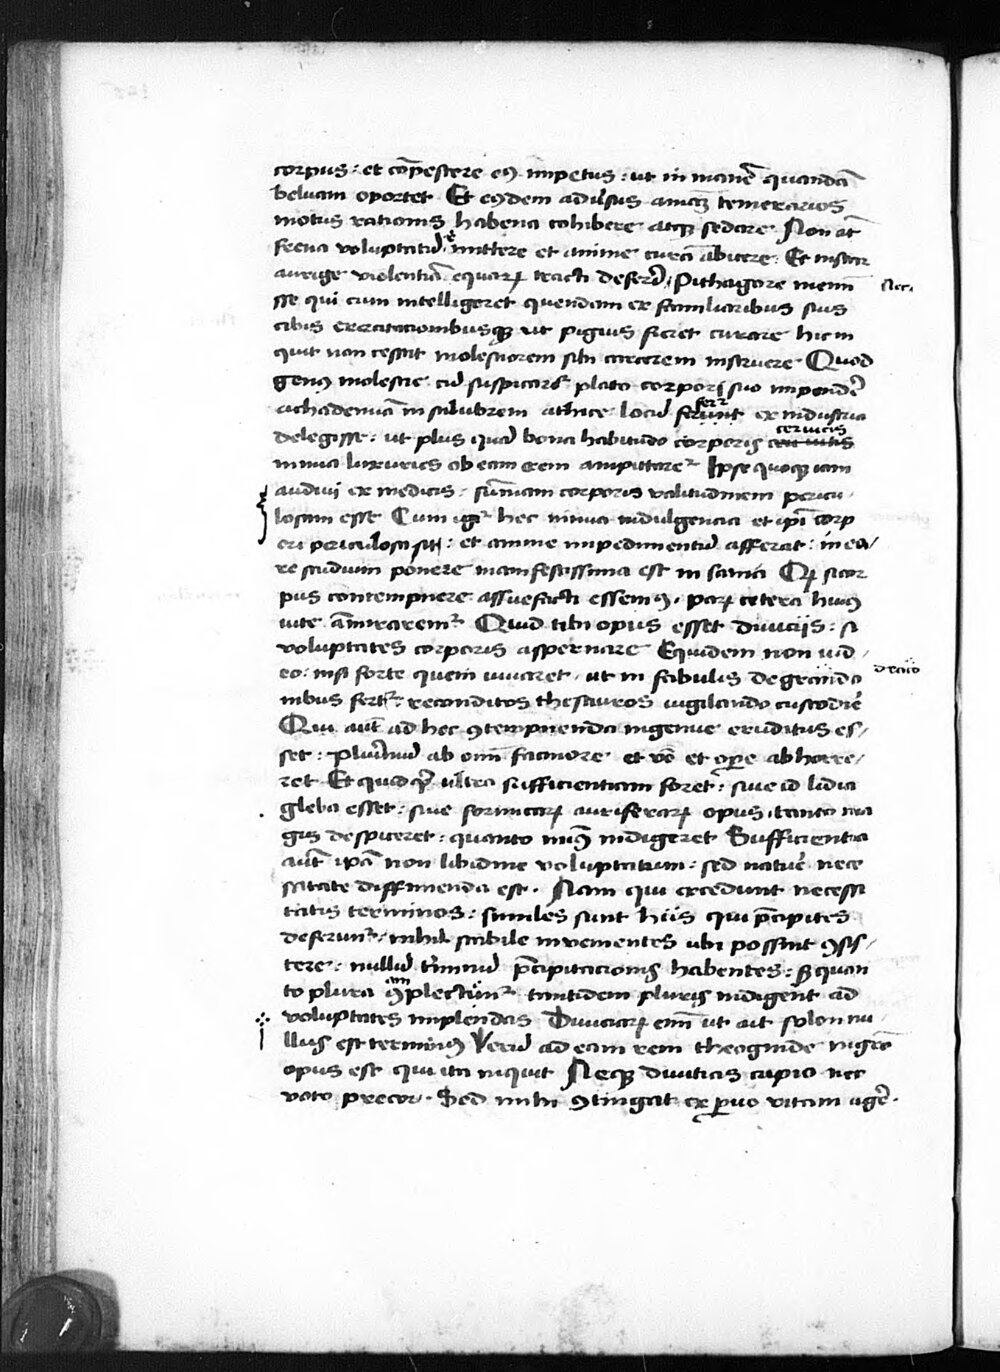 corpus : et cõpescere eiꝰ impetus : ut in manẽ quandã
beluam oportet Et eosdem aduersus animã temerarios
motus rationis habena cohibere atqꝫ sedare Non at̃
frena voluptatũ mittere et anime curã abicere Et instar
aurige violentia equoꝝ tracti deferri Pithagore memi
Nec.
sse qui cum intelligeret quendam ex familiaribus suis
cibis exercitacionibusqꝫ ut piguis fieret curare hic in
quit non cessat molestiorem sibi carcerem instruere Quod
genus molestie cũ suspicaret᷑ plato corpori suo impendẽ
achademiam insalubrem athice locũ ferũt ex industria
delegisse : ut plus quã bona habitudo corporis ceruicis
nimia luxuries ob eam rem amputtaret᷑ Ipse quoqꝫ iam
audiui ex medicis : sũmam corporis valitudinem pericu-
losam esse Cum igit᷑ hec nimia indulgencia et ipĩ corp
ori periculosa sit : et anime impedimentũ afferat : in ea/
re studium ponere manifestissima est in sania Qꝫ si cor
pus contempnere assuefacti essemꝰ . paꝝ cetera huiꝰ
uite ãmirarem᷑ Quid tibi opus esset diuiciis : si
voluptates corporis aspernare Equidem non uid
eo : nisi forte quem iuuaret ut in fabulis de draconi
draco
nibus fert᷑ : reconditos thesauros uigilando custodiẽ
Qui aut̃ ad hec ꝯtempnenda ingenue eruditus es/
set : plurimũ ab omni facinore et vẽ et oꝑe abhorre/
ret Et quidqꝫ ultra sufficientiam foret : siue id lidia
gleba esset : siue formicaꝝ auriferaꝝ opus . tanto ma
gis despiceret : quanto minꝰ indigeret Sufficientia
aut̃ ipã non libidine voluptatum : sed nature nece
ssitate diffinienda est . Nam qui excedunt necessi
tatis terminos : similes sunt hiis qui p̃cipites
deferunt᷑ . nihil stabile inuenientes ubi possint ꝯsis/
tere : nullũ t̃minũ p̃cipitacionis habentes : sꝫ quan
to plura ꝯplectunt᷑ tantidem pluris indigent ad
voluptates implendas Diuiciaꝝ enĩ ut ait solon nu
llus est terminus Verũ ad eam rem theognide mgro
opus est qui ita inquit Neqꝫ diuitias cupio nec
voto precor . Sed mihi ꝯtingat ex ꝑuo vitam agẽ .